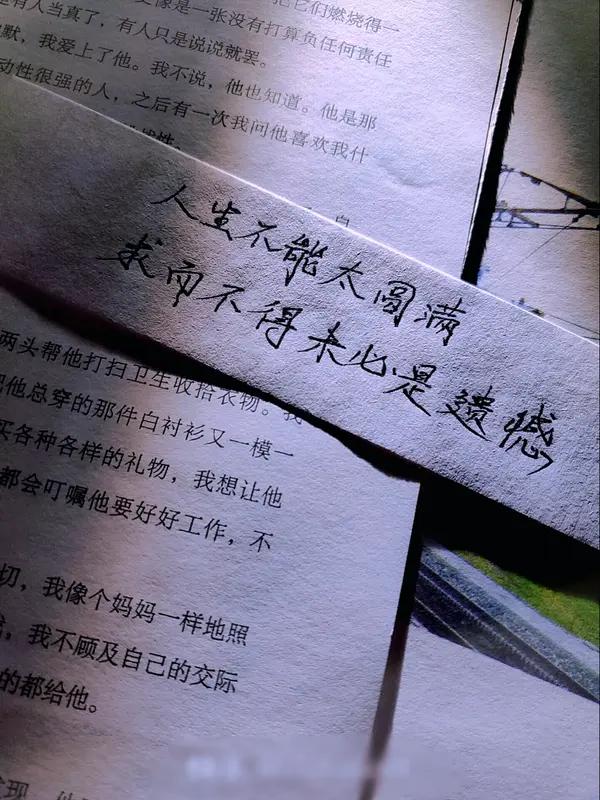 把它们燃烧得一
像是一张没有打算负任何责任
有人当真了，有人只是说说就罢。
默，我爱上了他。我不说，他也知道。他是那
动性很强的人，之后有一次我问他喜欢我什
人生不能太圆满
求而不得未必是遗憾
两头帮他打扫卫生收拾衣物。我
他总穿的那件白衬衫又一模一
买各种各样的礼物，我想让他
都会叮嘱他要好好工作，不
切，我像个妈妈一样地照
，我不顾及自己的交际
的都给他。